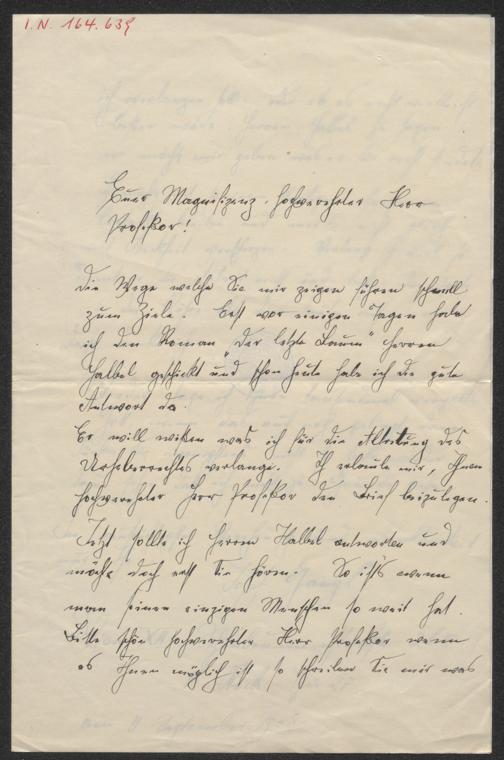 I.N. 164.639
Euer Magnifizenz, hochverehrter Herr
Profeßor!
Die Wege welche Sie mir zeigen führen schnell
zum Ziele. Erst vor einigen Tagen habe
ich den Roman "Der letzte Baum" Herren
Halbel geschickt und schon heute habe ich die gute
Antwort da.
Er will wißen was ich für die Abtretung des
Urheberrechtes verlange. Ich erlaube mir, Ihnen
hochverehrter Herr Profeßor den Brief beizulegen.
Jetzt sollte ich Herren Halbel antworten und
möchte doch erst Sie hören. So ist's wenn
man seinen einzigen Menschen so weit hat.
Bitte schön hochverehrter Herr Profeßor wenn
es Ihnen möglich ist so schreiben Sie mir was